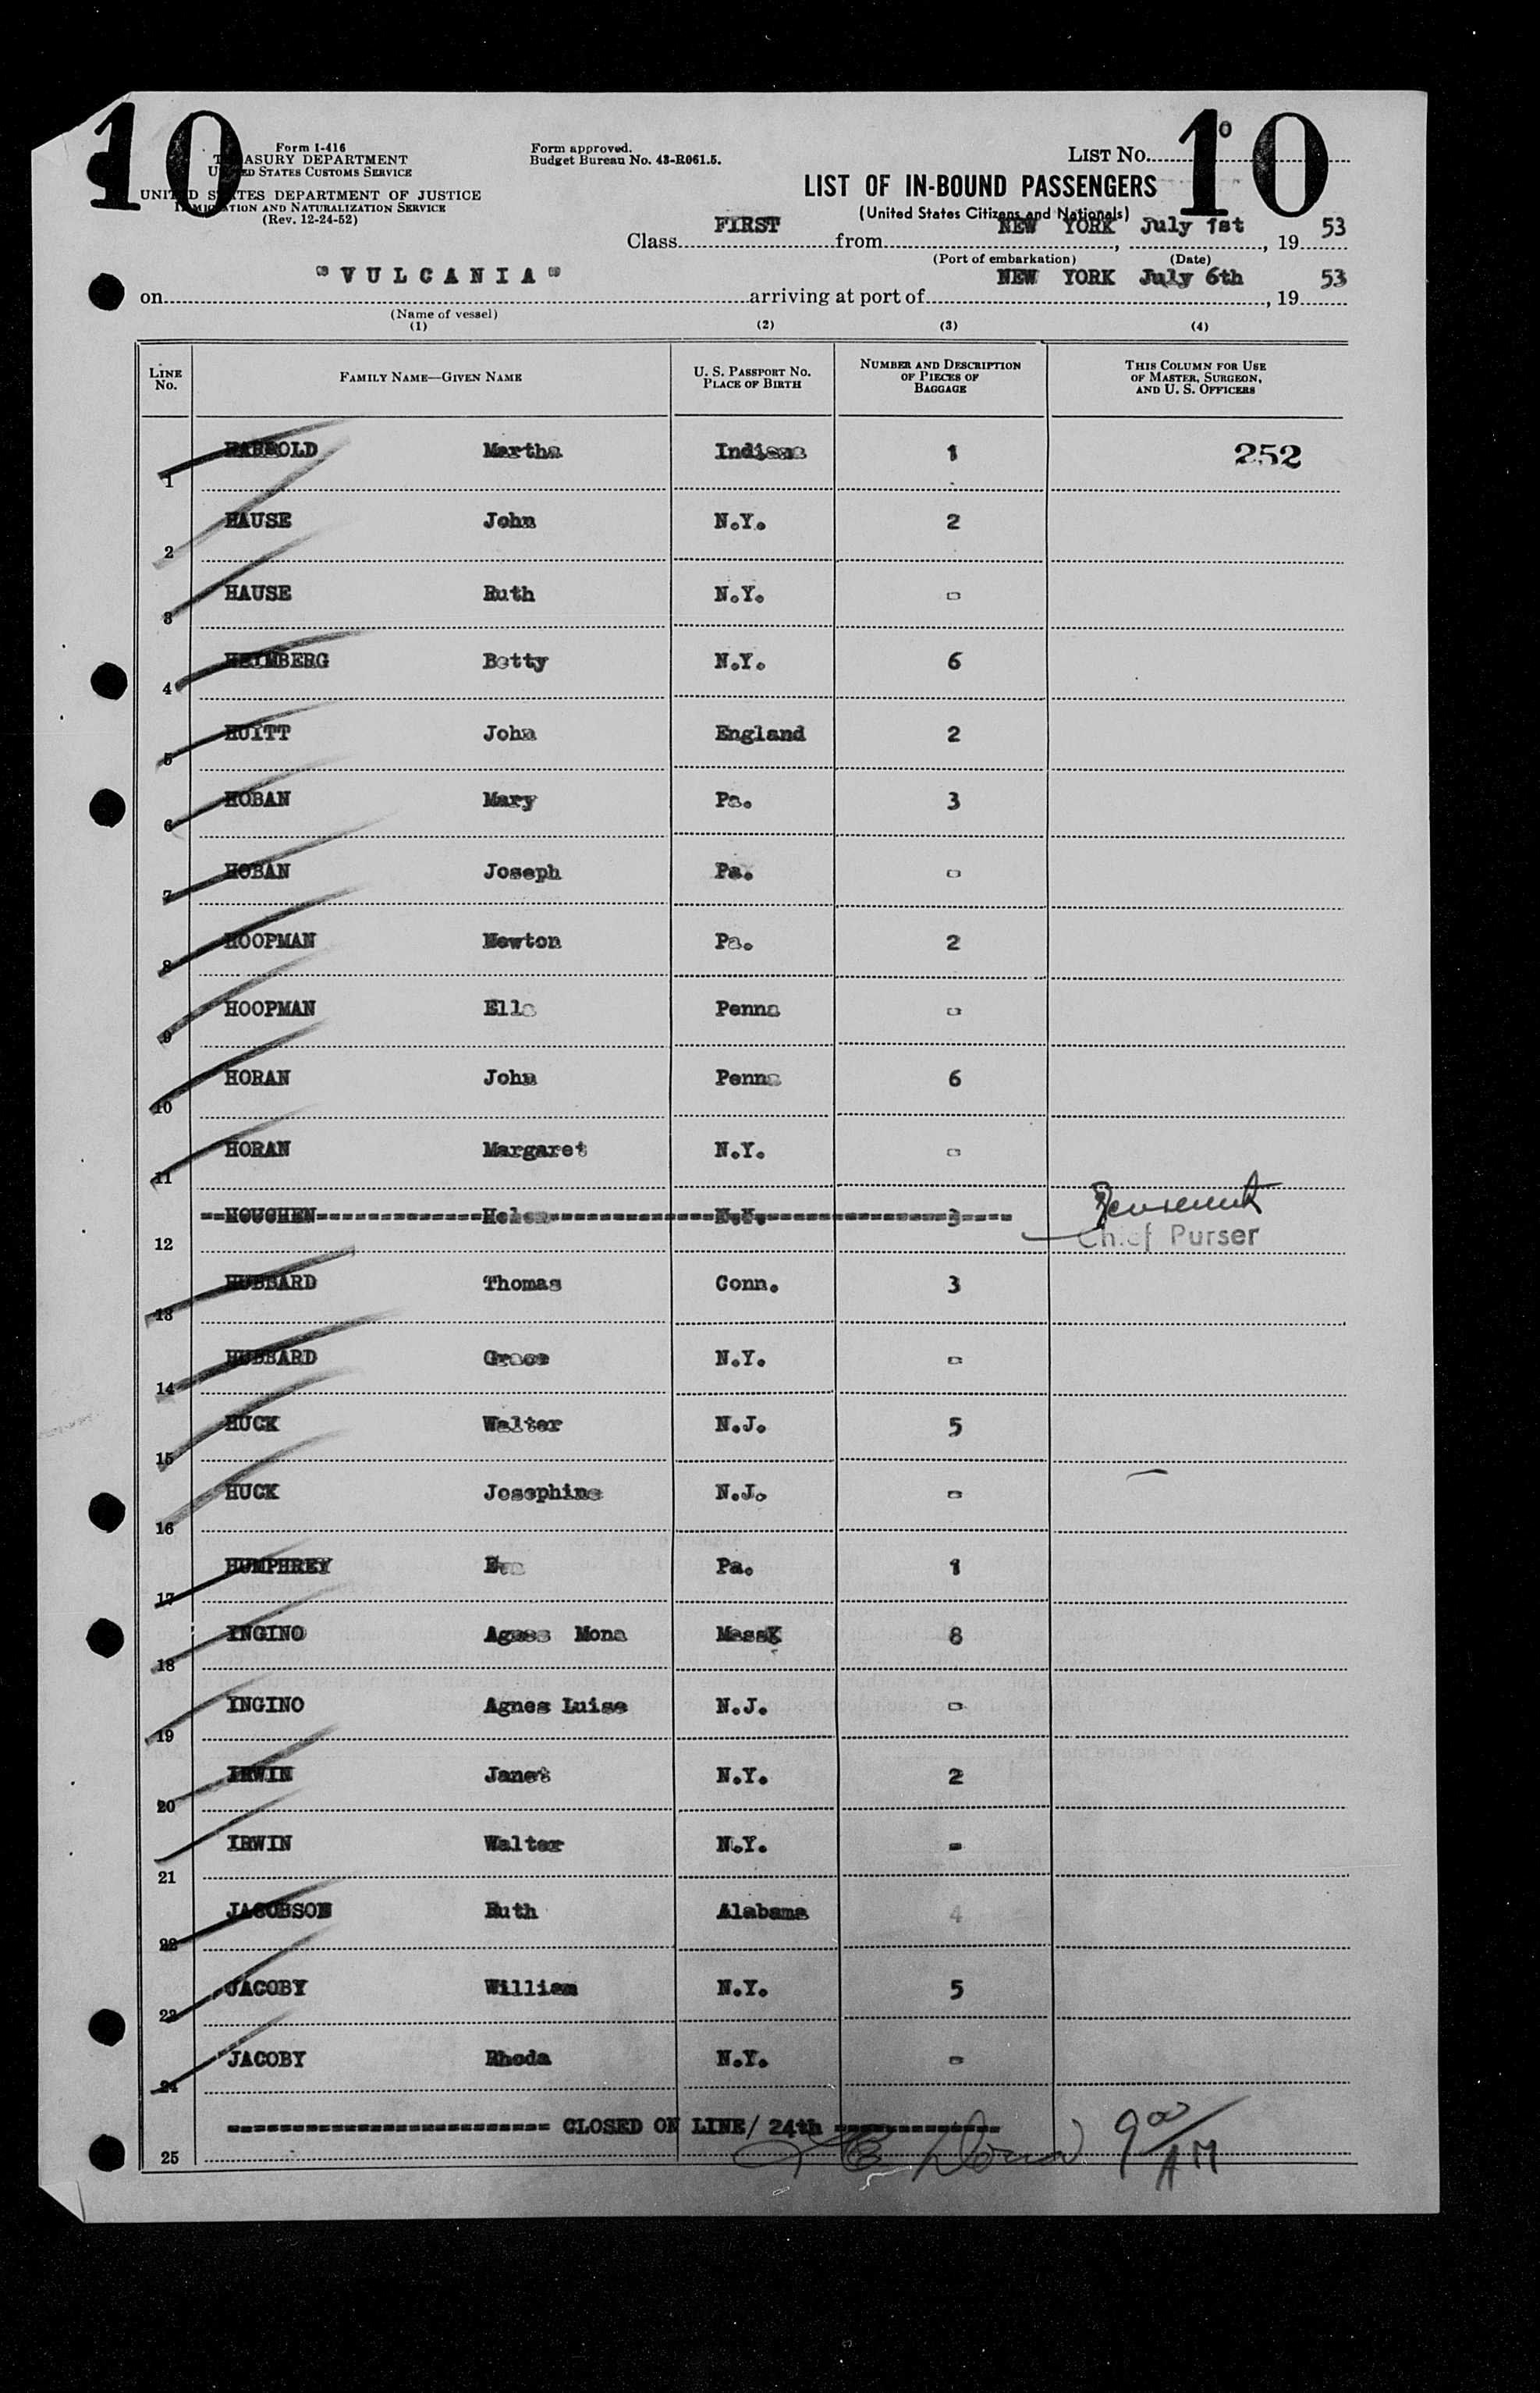 10
Form I-416
TREASURY DEPARTMENT
UNITED STATES CUSTOMS SERVICE
UNITED STATES DEPARTMENT OF JUSTICE
IMMIGRATION AND NATURALIZATION SERVICE
(Rev. 12-24-52)
Form approved.
Budget Bureau No. 43-R061.5.
LIST No. 10
LIST OF IN-BOUND PASSENGERS
(United States Citizens and Nationals)
Class FIRST from NEW YORK, July 1st, 19 53
(Port of embarkation) (Date)
on "VULCANIA" arriving at port of NEW YORK July 6th, 19 53
(Name of vessel)
(1) (2) (3) (4)
LINE No. FAMILY NAME—GIVEN NAME U. S. PASSPORT No. PLACE OF BIRTH NUMBER AND DESCRIPTION OF PIECES OF BAGGAGE THIS COLUMN FOR USE OF MASTER, SURGEON, AND U. S. OFFICERS
1 Martha Indiana 1 252
2 HAUSE John N.Y. 2
3 HAUSE Ruth N.Y. -
4 HEIMBERG Betty N.Y. 6
5 HUITT John England 2
6 HOBAN Mary Pa. 3
7 HOBAN Joseph Pa. -
8 HOOPMAN Newton Pa. 2
9 HOOPMAN Ella Penna -
10 HORAN John Penna 6
11 HORAN Margaret N.Y. -
12 HOUCHEN Helen N.Y. 3 Chief Purser
13 HUBBARD Thomas Conn. 3
14 HUBBARD Grace N.Y. -
15 HUCK Walter N.J. 5
16 HUCK Josephine N.J. -
17 HUMPHREY Eva Pa. 1
18 INGINO Agnes Mona Mass 8
19 INGINO Agnes Luise N.J. -
20 IRWIN Janet N.Y. 2
21 IRWIN Walter N.Y. -
22 JACOBSON Ruth Alabama 4
23 JACOBY William N.Y. 5
24 JACOBY Rhoda N.Y. -
25 CLOSED ON LINE/ 24th
9 00/AM